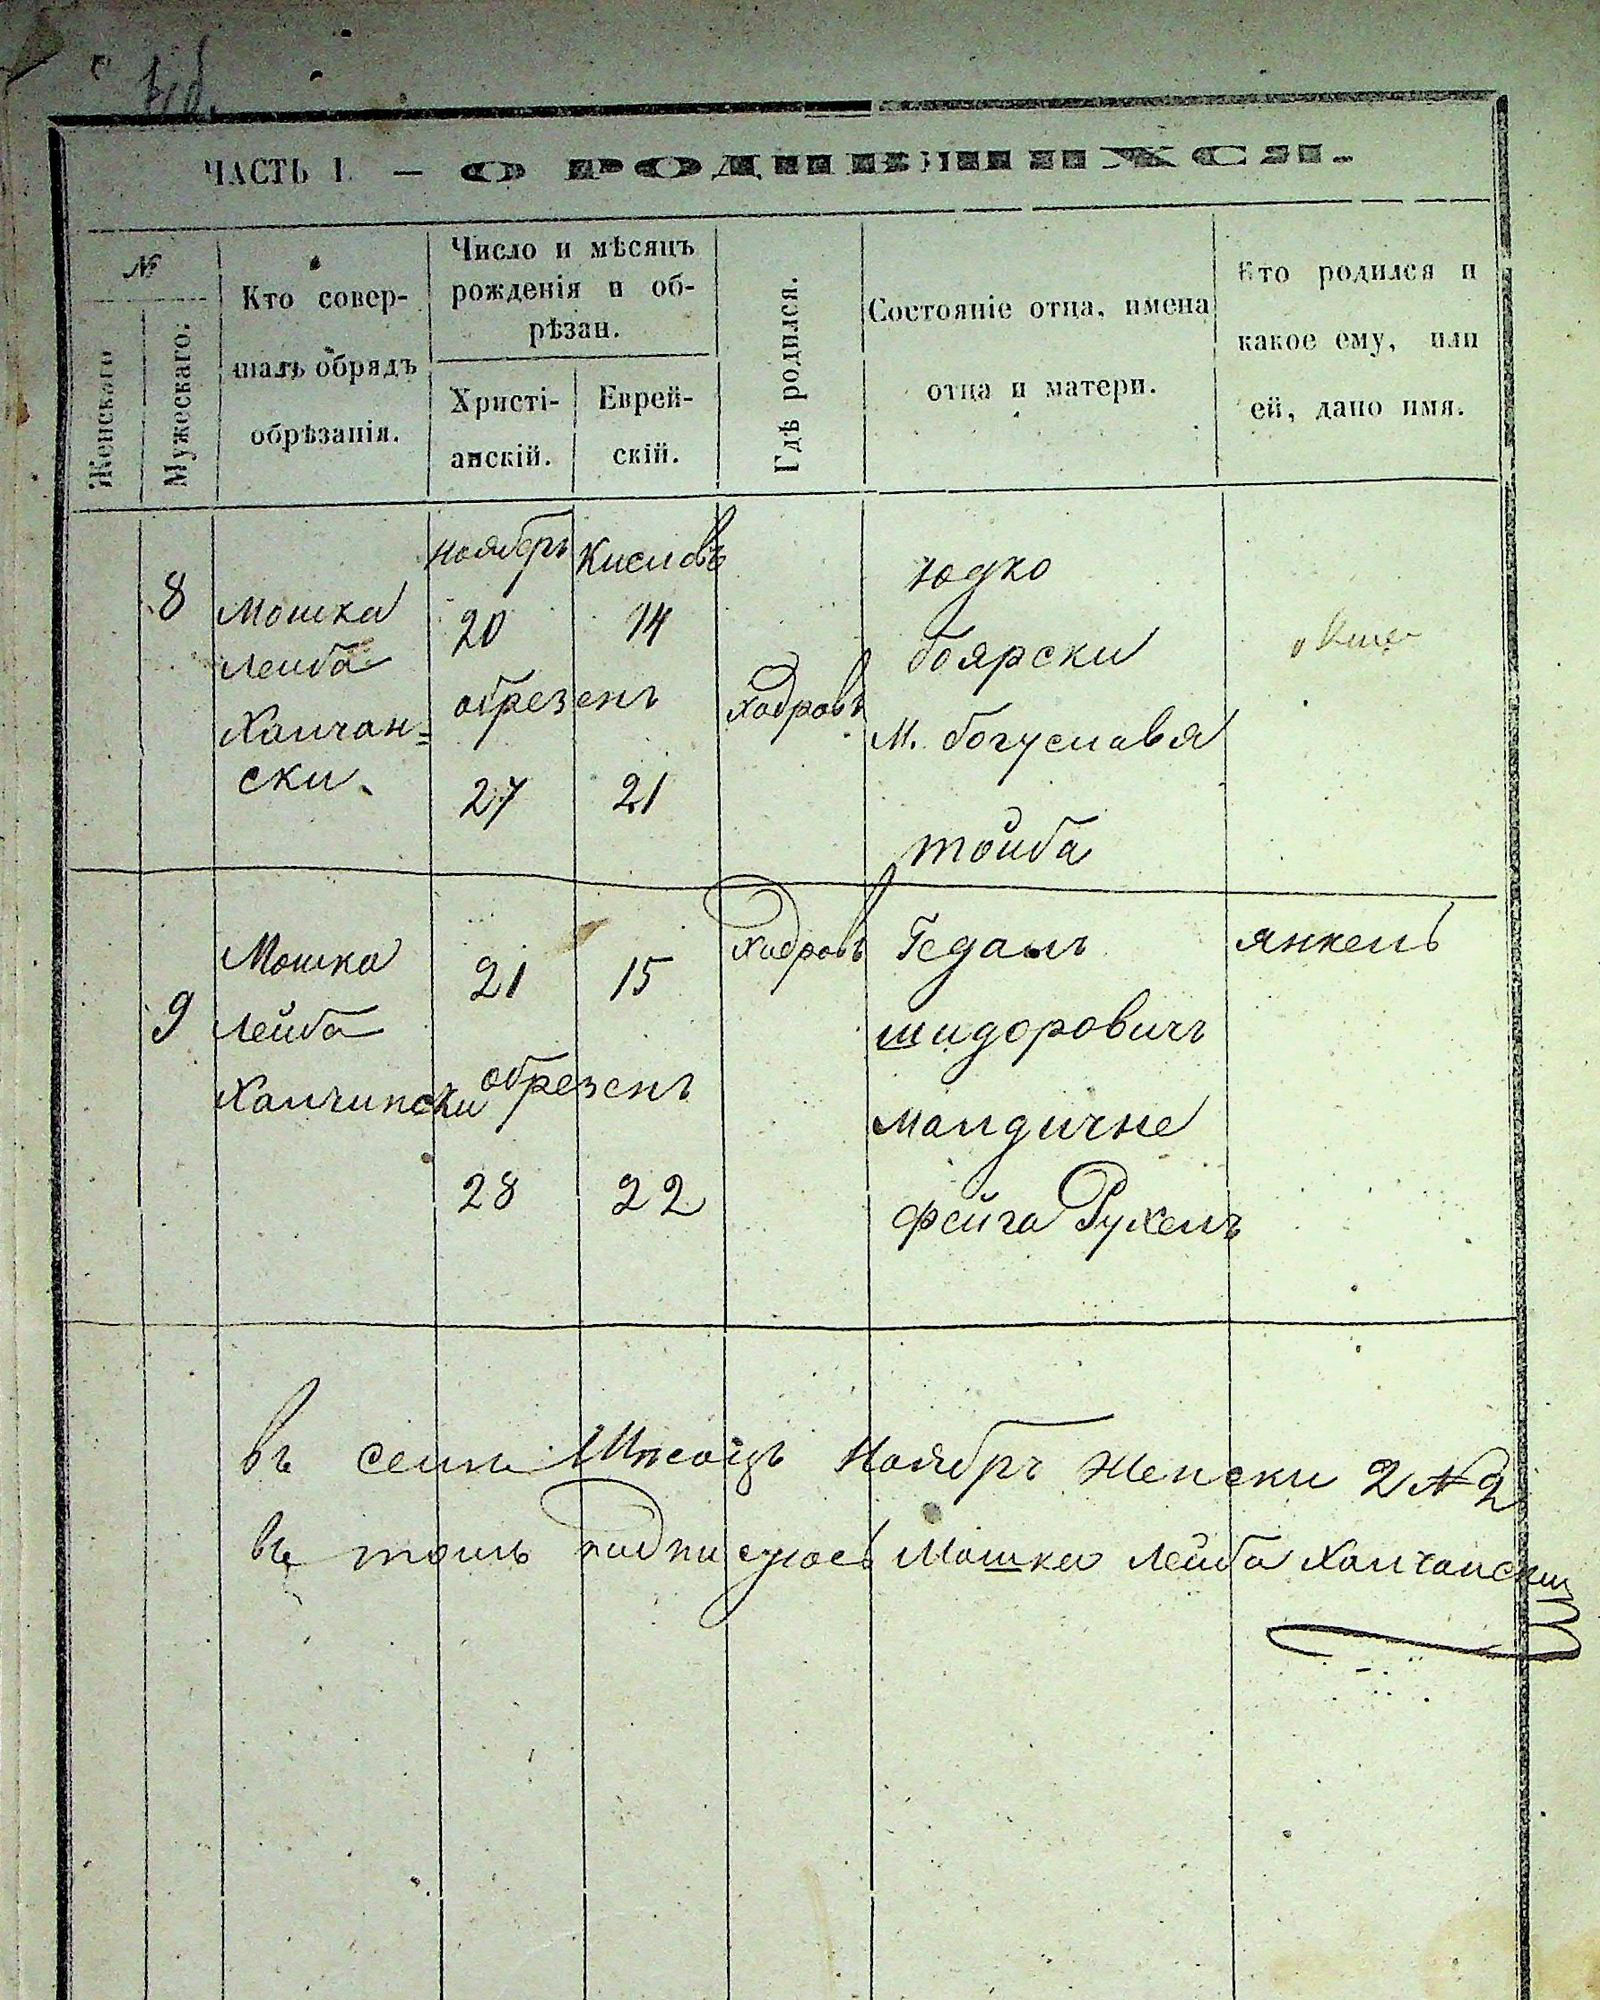 ЧАСТЬ I. — О РОДИВШИХСЯ.
№
Женскаго
Мужескаго.
Кто совер-
шалъ обрядъ
обрѣзанія.
Число и мѣсяцъ
рожденія и об-
рѣзан.
Христі-
анскій.
Еврей-
скій.
Гдѣ родился.
Состояніе отца, имена
отца и матери.
Кто родился и
какое ему, или
ей, дано имя.
8
Мошка
Леиба
Халчан=
ски
Ноябръ
20
обрезенъ
27
Кисловъ
14
21
Ходровъ
Юдко
боярски
М. богуславя
тойба
9
Мошка
Лейба
Халчински
21
15
обрезенъ
28
22
Ходровъ
Гедалъ
шидоровичъ
фейга Рухелъ
янкель
въ Ноябръ Женски 2 № 2
въ томъ подписуюсь Мошка Лейба Халчански